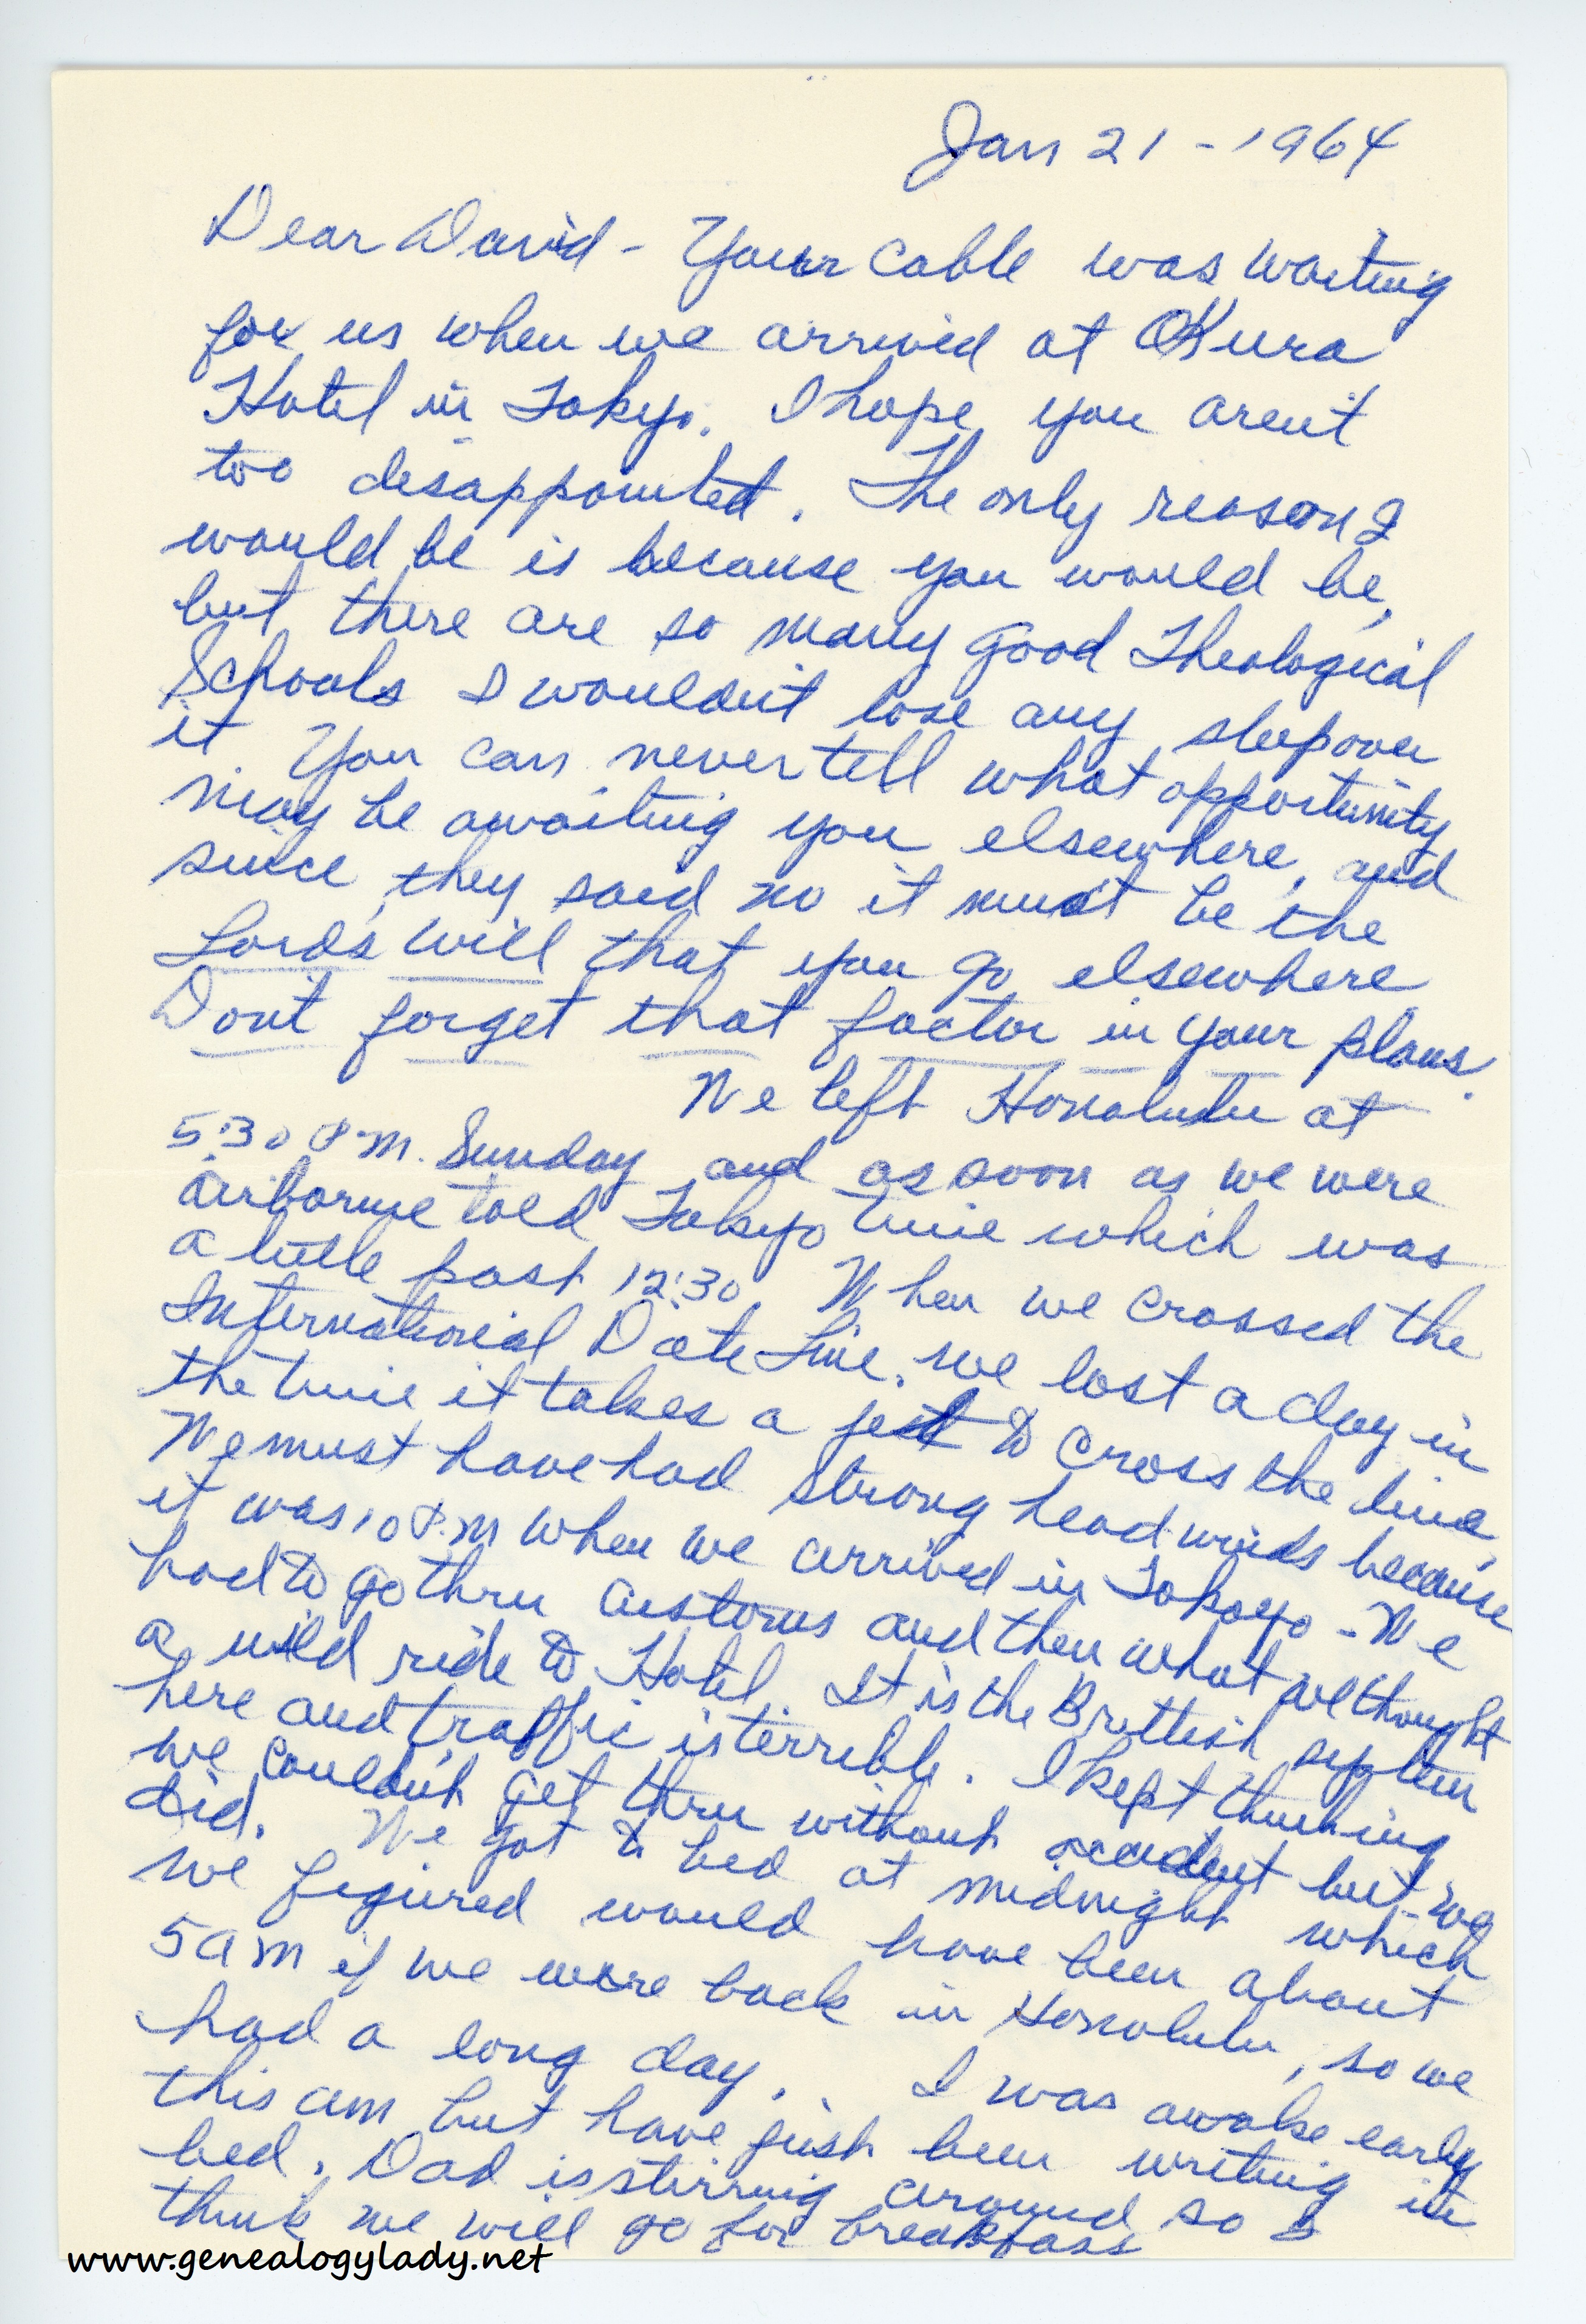 Jan 21 - 1964
Dear David - Your cable was waiting
for us when we arrived at OKura
Hotel in Tokyo. I hope you arent
too disappointed. The only reason I
would be is because you would be,
but there are so many good Theological
Schools I wouldn't lose any sleep over
it You can never tell what opportunity
may be awaiting you elsewhere, and
since, they said no it must be the
Lords will that you go elsewhere
Don't forget that factor in your plans.
We left Honolulu at
5:30 P.M. Sunday and as soon as we were
airborne told Tokyo time which was
a little past 12:30. When we crossed the
International Date Line, we lost a day in
the time it takes a jet to cross the line,
We must have had strong head winds because
it was 10 P.M when we arrived in Tokoyo - We
had to go thru customs and then what we thought
a wild ride to Hotel. It is the Brittish system
here and traffic is terrible. I kept thinking
we couldn't get thru without accident but we
did. We got to bed at midnight which
we figured would have been about
5 am if we were back in Honolulu, so we
had a long day. I was awake early
this am but have just been writing in
bed. Dad is stirring around so I
think we will go for breakfass
www.genealogylady.net